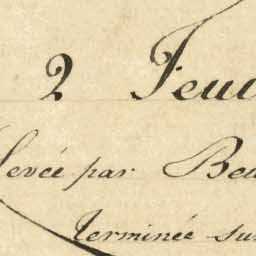 2 Feu
Levée par Be
Terminée su